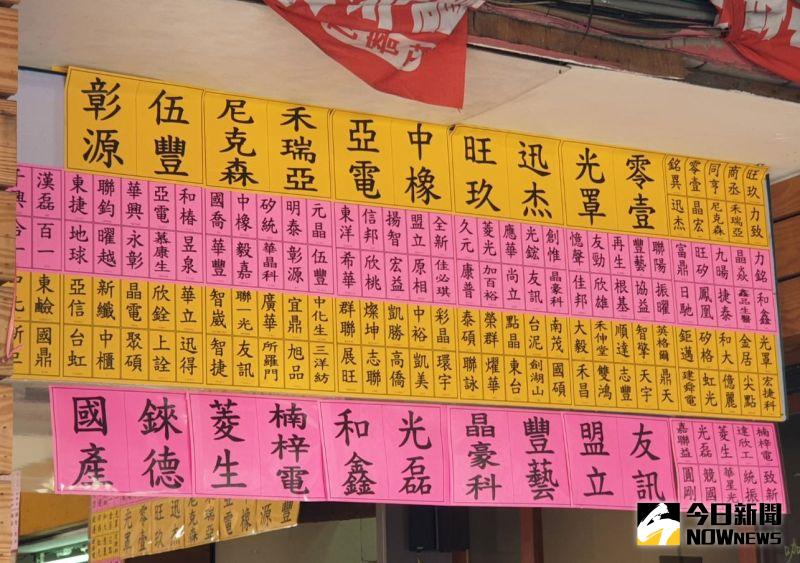 彰源 伍豐 尼克森 禾瑞亞 亞電 中橡 旺玖 迅杰 光罩 零壹
銘異 零壹 同亨 商丞 旺玖
迅杰 晶宏 尼克森 禾瑞亞 力致
漢磊 東捷 聯鈞 華興 亞電 和椿 國喬 中橡 矽統 明泰 元晶 東洋 信邦 揚智 盟立 全新 久元 菱光 應華 光鋐 創惟 憶聲 友勁 再生 豐藝 聯陽 富鼎 旺矽 九暘 晶焱 力銘
百一 地球 曜越 永彰 慕康生 昱泉 華豐 毅嘉 華晶科 彰源 伍豐 希華 欣桃 宏益 原相 佳必琪 康普 加百裕 尚立 友訊 晶豪科 佳邦 欣雄 根基 協益 振曜 日馳 鳳凰 捷泰 鑫品生醫 和鑫
東鹼 亞信 新纖 晶電 欣銓 華立 智崴 聯一光 廣華 宜鼎 中化生 群聯 燦坤 凱勝 中裕 彩晶 泰碩 榮群 點晶 台泥 南茂 大毅 禾伸堂 順達 智擎 英格爾 鉅邁 矽格 和大 金居 光罩
國鼎 台虹 中櫃 聚碩 上詮 迅得 智捷 友訊 所羅門 旭品 三洋紡 展旺 志聯 高僑 凱美 環宇 聯詠 燿華 東台 劍湖山 國碩 禾昌 雙鴻 志豐 天宇 鼎天 建舜電 虹光 億麗 尖點 宏捷科
國產 錸德 菱生 楠梓電 和鑫 光磊 晶豪科 豐藝 盟立 友訊
嘉聯益 光磊 菱生 達欣工 楠梓電
圓剛 競國 華星光 統振 致新
今日新聞
NOWNEWS